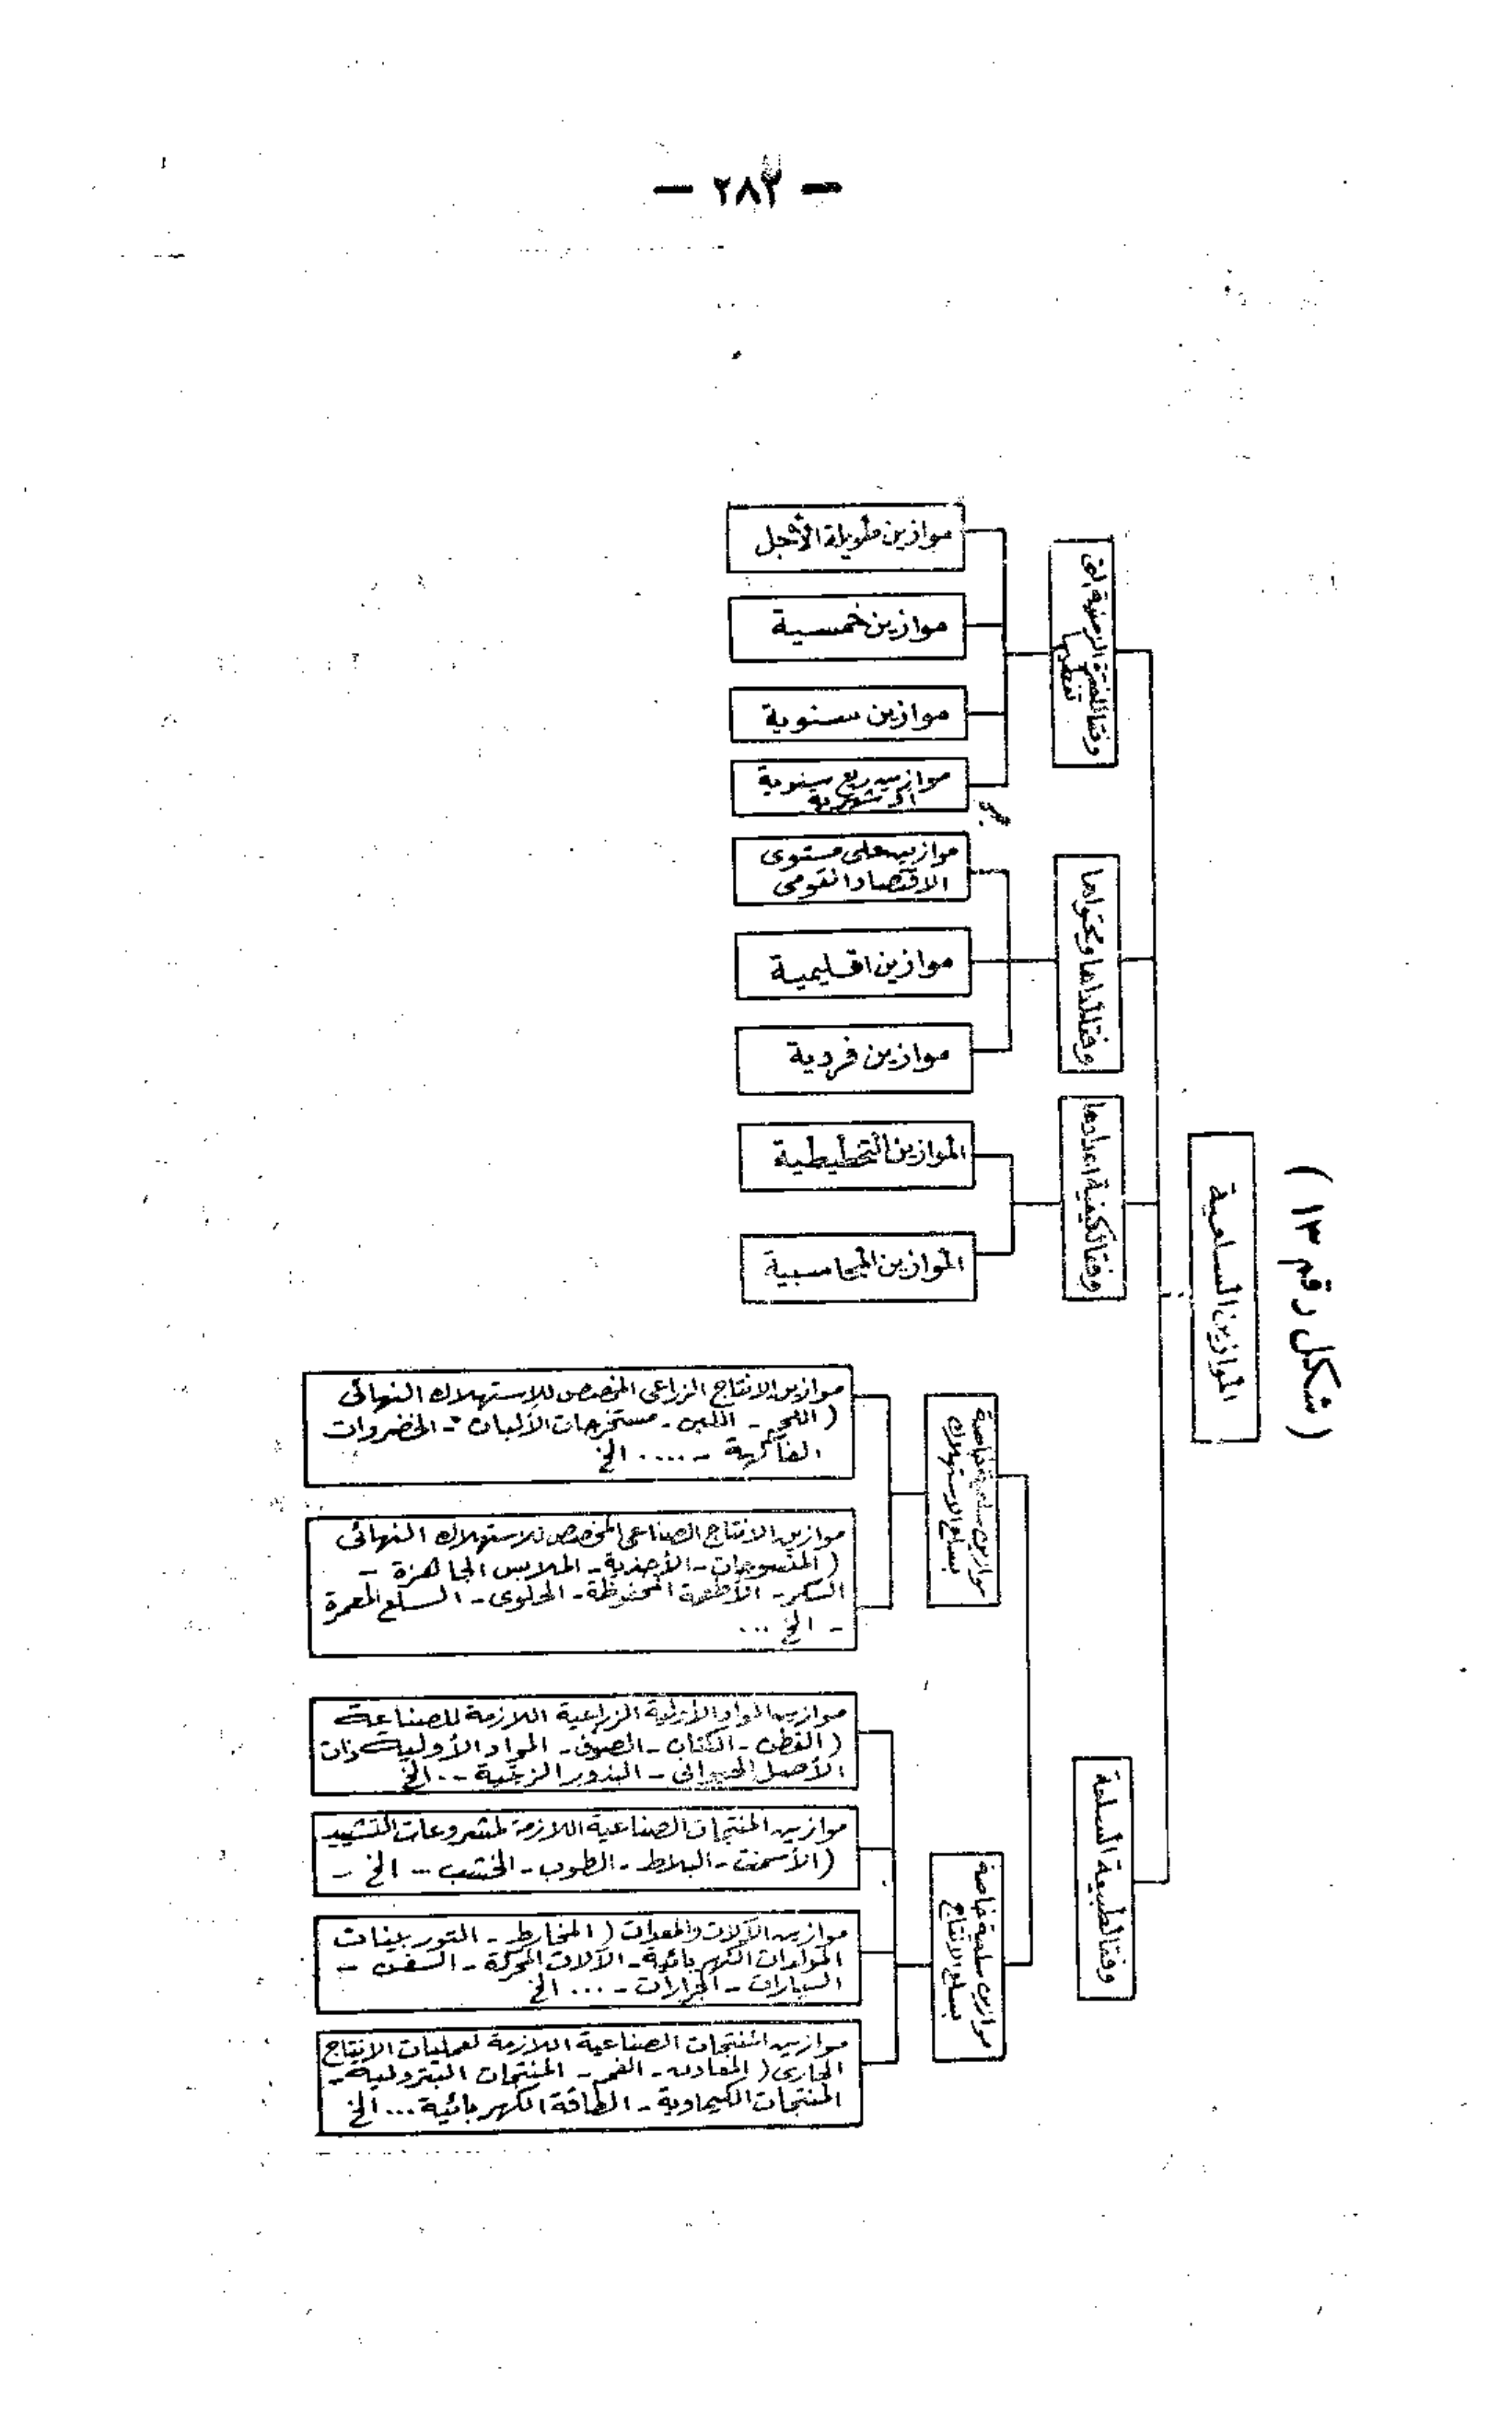 — ٢٨٣ —
( شكل رقم ١٣ )
الموازين السلعية
وفقا للفترة الزمنية التى
تغطيها
موازين طويلة الأجل
موازين خمسية
موازين سنوية
موازين ربع سنوية
أو شهرية
وفقا لمداها ومحتواها
موازين على مستوى
الاقتصاد القومى
موازين اقليمية
موازين فردية
وفقا لكيفية اعدادها
الموازين التخطيطية
الموازين المحاسبية
وفقا لطبيعة السلعة
موازين سلعية خاصة
بسلع الاستهلاك
موازين الانتاج الزراعى المخصص للاستهلاك النهائى
( اللحم - اللبن - مستخرجات الألبان - الخضروات
الفاكهة - ..... الخ
موازين الانتاج الصناعى المخصص للاستهلاك النهائى
( المنسوجات - الأحذية - الملابس الجاهزة -
السكر - الأطعمة المحفوظة - الحلوى - السلع المعمرة
- الخ ...
موازين سلعية خاصة
بسلع الانتاج
موازين المواد الأولية الزراعية اللازمة للصناعة
( القطن - الكتان - الصوف - المواد الأولية ذات
الأصل الحيوانى - البذور الزيتية -.. الخ
موازين المنتجات الصناعية اللازمة لمشروعات التشييد
( الأسمنت - البلاط - الطوب - الخشب -- الخ -
موازين الآلات والمعدات ( المخارط - التوربينات
المولدات الكهربائية - الآلات المحركة - السفن -
السيارات - الجرارات - ... الخ
موازين المنتجات الصناعية اللازمة لعمليات الانتاج
الجارى ( المعادن - الفحم - المنتجات البترولية -
المنتجات الكيماوية - الطاقة الكهربائية ... الخ